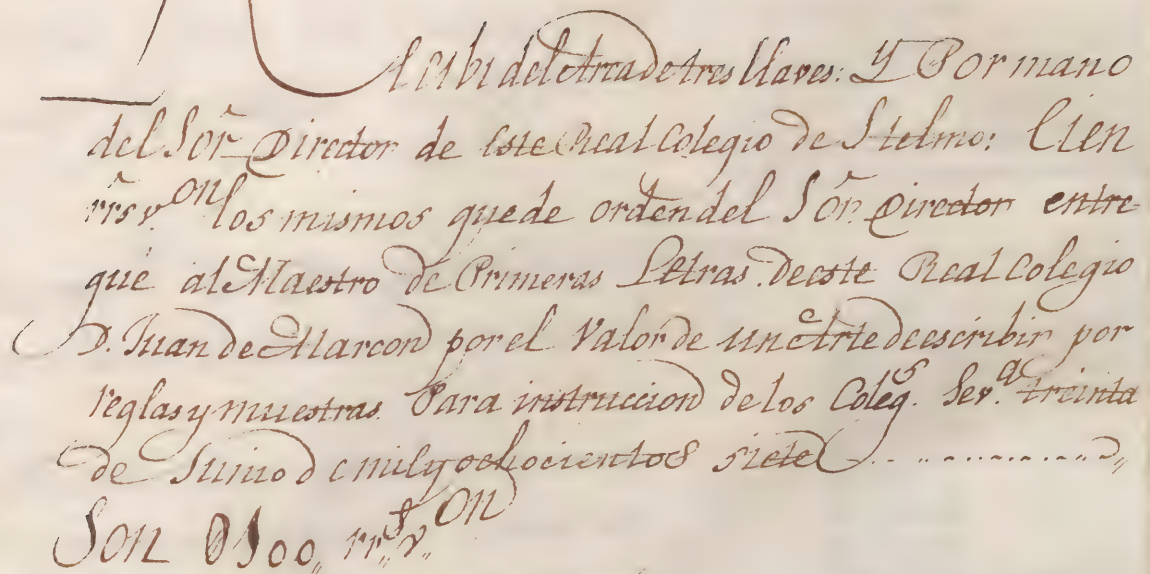 Recibi del Arca de tres llaves: Y Por mano
del Sor. Director de este Real Colegio de S telmo: Cien
rrs v.on los mismos que de orden del Sor. Director entre-
gué al Maestro de Primeras Letras de este Real Colegio
D. Juan de Marcon por el Valor de un Arte de escribir por
reglas y muestras. Para instruccion de los Coleg.s Sev.a treinta
de Junio de mil y ochocientos siete
Son 0100,, rr.s v.on